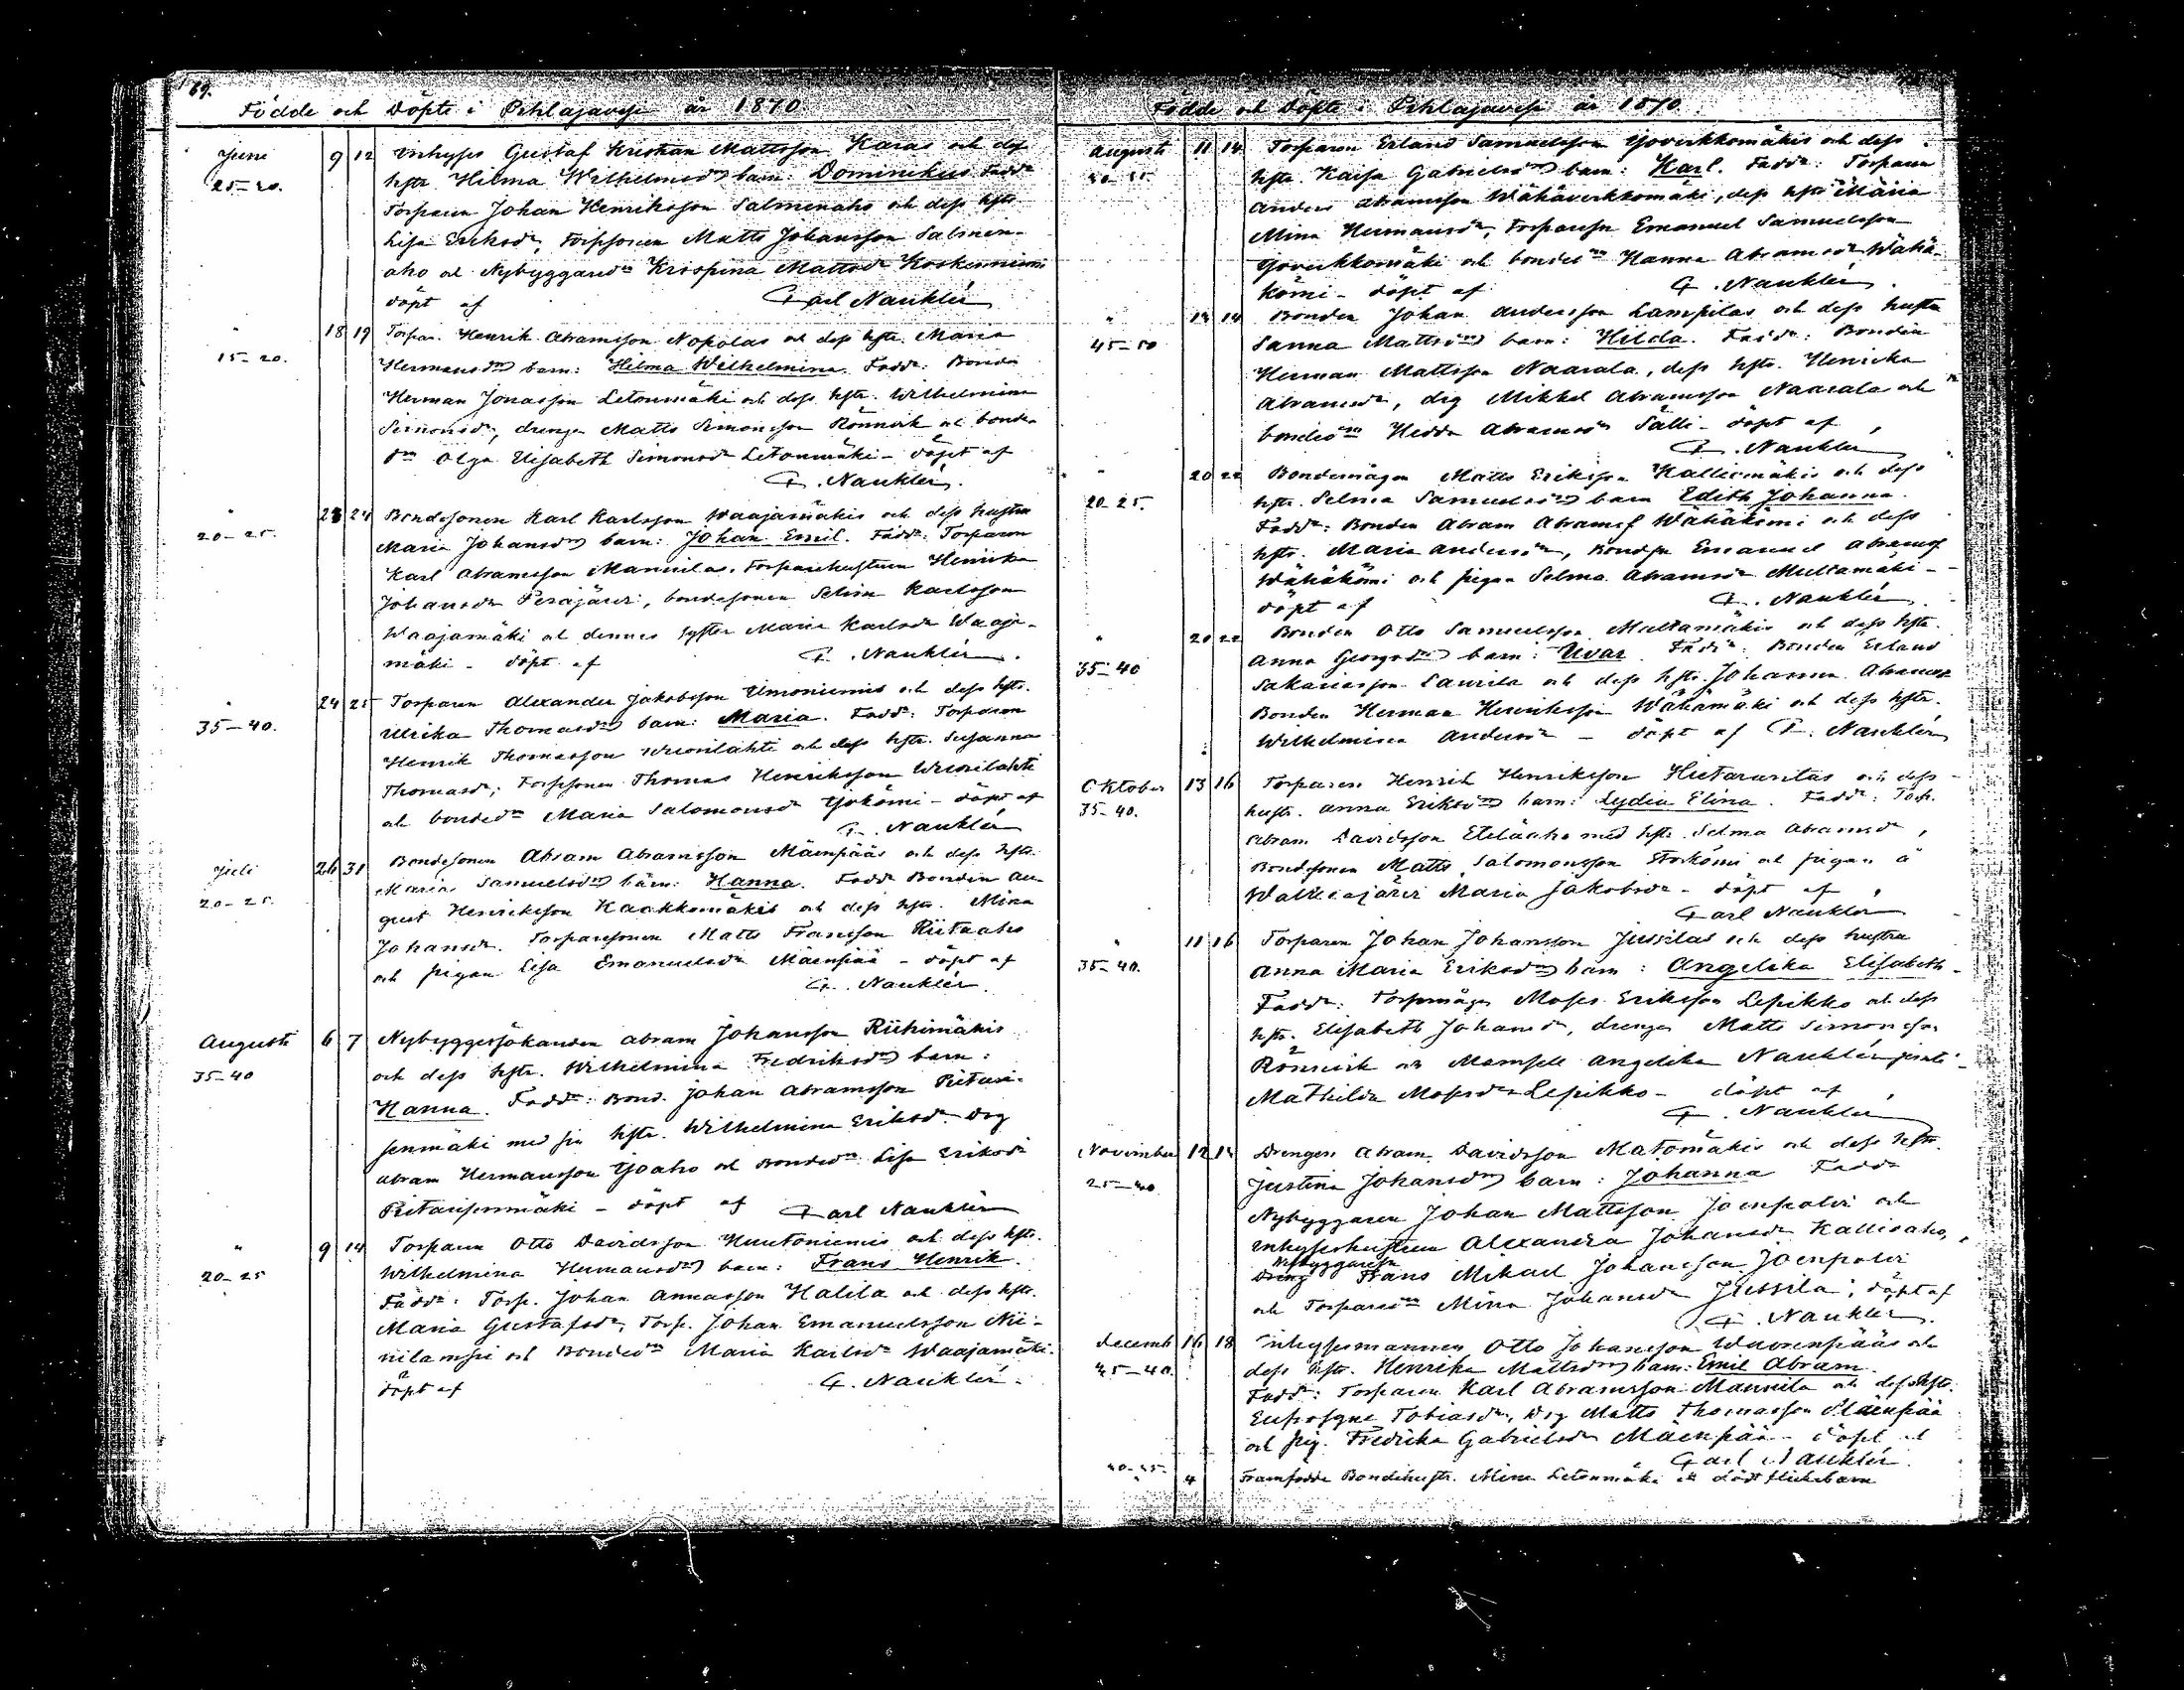 69.
Födde och Döpte i Pihlajavesi år 1870
Juni 9 12 Inhyses Gustaf Kristian Mattsson Karas och dess
25-30. hstr. Hilma Wilhelmsdr barn: Dominikus Faddr
Torparen Johan Henriksson Salmenaho och dess hstr.
Lisa Eriksdr, Torpsonen Matts Johansson Salmen-
aho och Nybyggaredr Krispina Mattsdr Koskenniemi
döpt af Carl Nauklér
" 18 19 Torpar. Henrik Abramsson Nopolas och dess hstr. Maria
15-20. Hermansdr barn: Hilma Wilhelmina. Faddr: Bonden
Herman Jonasson Letonmäki och dess hstr. Wilhelmina
Simonsdr, drengen Matts Simonsson Rönnvik och bonde
dr Olga Elisabeth Simonsdr Letonmäki - döpt af
C. Nauklér.
" 23 24 Bondesonen Karl Karlsson Waajamäkis och dess hustru
20-25. Maria Johansdr barn: Johan Emil. Faddr: Torparen
Karl Abramsson Mannilas, Torparehustrun Henrika
Johansdr Peräjärvi, bondesonen Selim Karlsson
Waajamäki och dennes syster Maria Karlsdr Waaja-
mäki - döpt af C. Nauklér.
" 24 25 Torparen Alexander Jakobsson Uimoniemis och dess hstr.
35-40. Ulrika Thomasdr barn: Maria. Faddr: Torparen
Henrik Thomasson Wuorilahti och dess hstr. Susanna
Thomasdr, Torpsonen Thomas Henriksson Wuorilahti
och bondedr Maria Salomonsdr Yjokömi - döpt af
C. Nauklér
Juli 26 31 Bondesonen Abram Abramsson Mäenpääs och dess hstr.
20-25. Maria Samuelsdr barn: Hanna. Faddr Bonden Au-
gust Henriksson Kaakkomäkis och dess hstr. Mina
Johansdr. Torparesonen Matts Fransson Riitaaho
och pigan Lisa Emanuelsdr Mäenpää - döpt af
C. Nauklér.
Augusti 6 7 Nybyggersökanden Abram Johansson Riihimäkis
35-40 och dess hstr. Wilhelmina Fredriksdr barn:
Hanna. Faddr: Bond. Johan Abramsson Pitari-
senmäki med sin hstr. Wilhelmina Eriksdr. Drg
Abram Hermansson Yjoaho och Bondedr Lisa Eriksdr
Pitarisenmäki - döpt af Carl Nauklér
" 9 14 Torparen Otto Davidsson Huutoniemis och dess hstr.
20-25 Wilhelmina Hermansdr barn: Frans Henrik.
Faddr: Torp. Johan Annasson Halila och dess hstr.
Maria Gustafsdr, Torp. Johan Emanuelsson Nii-
nilampi och Bondedr Maria Karlsdr Waajamäki.
döpt af C. Nauklér.
Födde och Döpte i Pihlajavesi år 1870.
Augusti 11 14 Torparen Erland Samuelsson Yoverkkomäkis och dess
hstr. Kaisa Gabrielsdr barn: Karl. Faddr: Torparen
Anders Abramsson Wähäverkkomäki, dess hstr Maria
Mina Hermansdr, Torparesn Emanuel Samuelsson
Yoverkkomäki och bondedr Hanna Abramsdr Wähä-
kömi - döpt af C. Nauklér.
" 14 14 Bonden Johan Andersson Lampilas och dess hustru
45-50 Sanna Mattsdr barn: Hilda. Faddr: Bonden
Herman Mattsson Naarala, dess hstr. Henrika
Abramsdr, drg Mikkel Abramsson Naarala och
bondedr Hedda Abramsdr Sälli - döpt af
C. Nauklér
" 20 22 Bondemågen Matts Eriksson Kalliomäkis och dess
20-25. hstr. Selma Samuelsdr barn Edith Johanna.
Faddr: Bonden Abram Abramss Wähäkömi och dess
hstr. Maria Andersdr, Bondsn Emanuel Abramss
Wähäkömi och pigan Selma Abramsdr Multamäki -
döpt af C. Nauklér.
" 20 22 Bonden Otto Samuelsson Multamäkis och dess hstr.
35-40 Anna Georgsdr barn: Ivar. Faddr: Bonden Erland
Sakariasson Laurila och dess hstr. Johanna Abramsdr
Bonden Herman Henriksson Wähämäki och dess hstr.
Wilhelmina Andersdr - döpt af C. Nauklér
Oktober 13 16 Torparen Henrik Henriksson Hietarantas och dess
35-40. hustr. Anna Eriksdr barn: Lydia Elina. Faddr: Torp.
Abram Davidsson Eteläaho med hstr. Selma Abramsdr,
Bondsonen Matts Salomonsson Storkömi och pigan å
Walkiajärvi Maria Jakobsdr - döpt af
Carl Nauklér
" 11 16 Torparen Johan Johansson Jussilas och dess hustru
35-40. Anna Maria Eriksdr barn: Angelika Elisabeth.
Faddr: Torpmågen Moses Eriksson Lepikko och dess
hstr. Elisabeth Johansdr, drengen Matts Simonsson
Rönnvik och Mamsell Angelika Nauklér samt
Mathilda Mosesdr Lepikko - döpt af
C. Nauklér
November 12 13 Drengen Abram Davidsson Matomäkis och dess hstr.
Justina Johansdr barn: Johanna Faddr
Nybyggaren Johan Mattsson Joenpolvi och
Inhyseshustrun Alexandra Johansdr Kallioaho,
Nybyggaresn
Dreng Frans Mikael Johansson Joenpolvi
och Torparedr Mina Johansdr Jussila; döpt af
C. Nauklér.
Decemb 16 18 Inhysesmannen Otto Johansson Wuorenpääs och
dess hstr. Henrika Mattsdr barn: Emil Abram.
Faddr: Torparen Karl Abramsson Mannila och dess hstr.
Eufrosyne Tobiasdr, Drg Matts Thomasson Mäenpää
och pig. Fredrika Gabrielsdr Mäenpää - döpt af
Carl Nauklér.
4 Framfödde Bondehustr. Mina Letonmäki ett dödt flickebarn